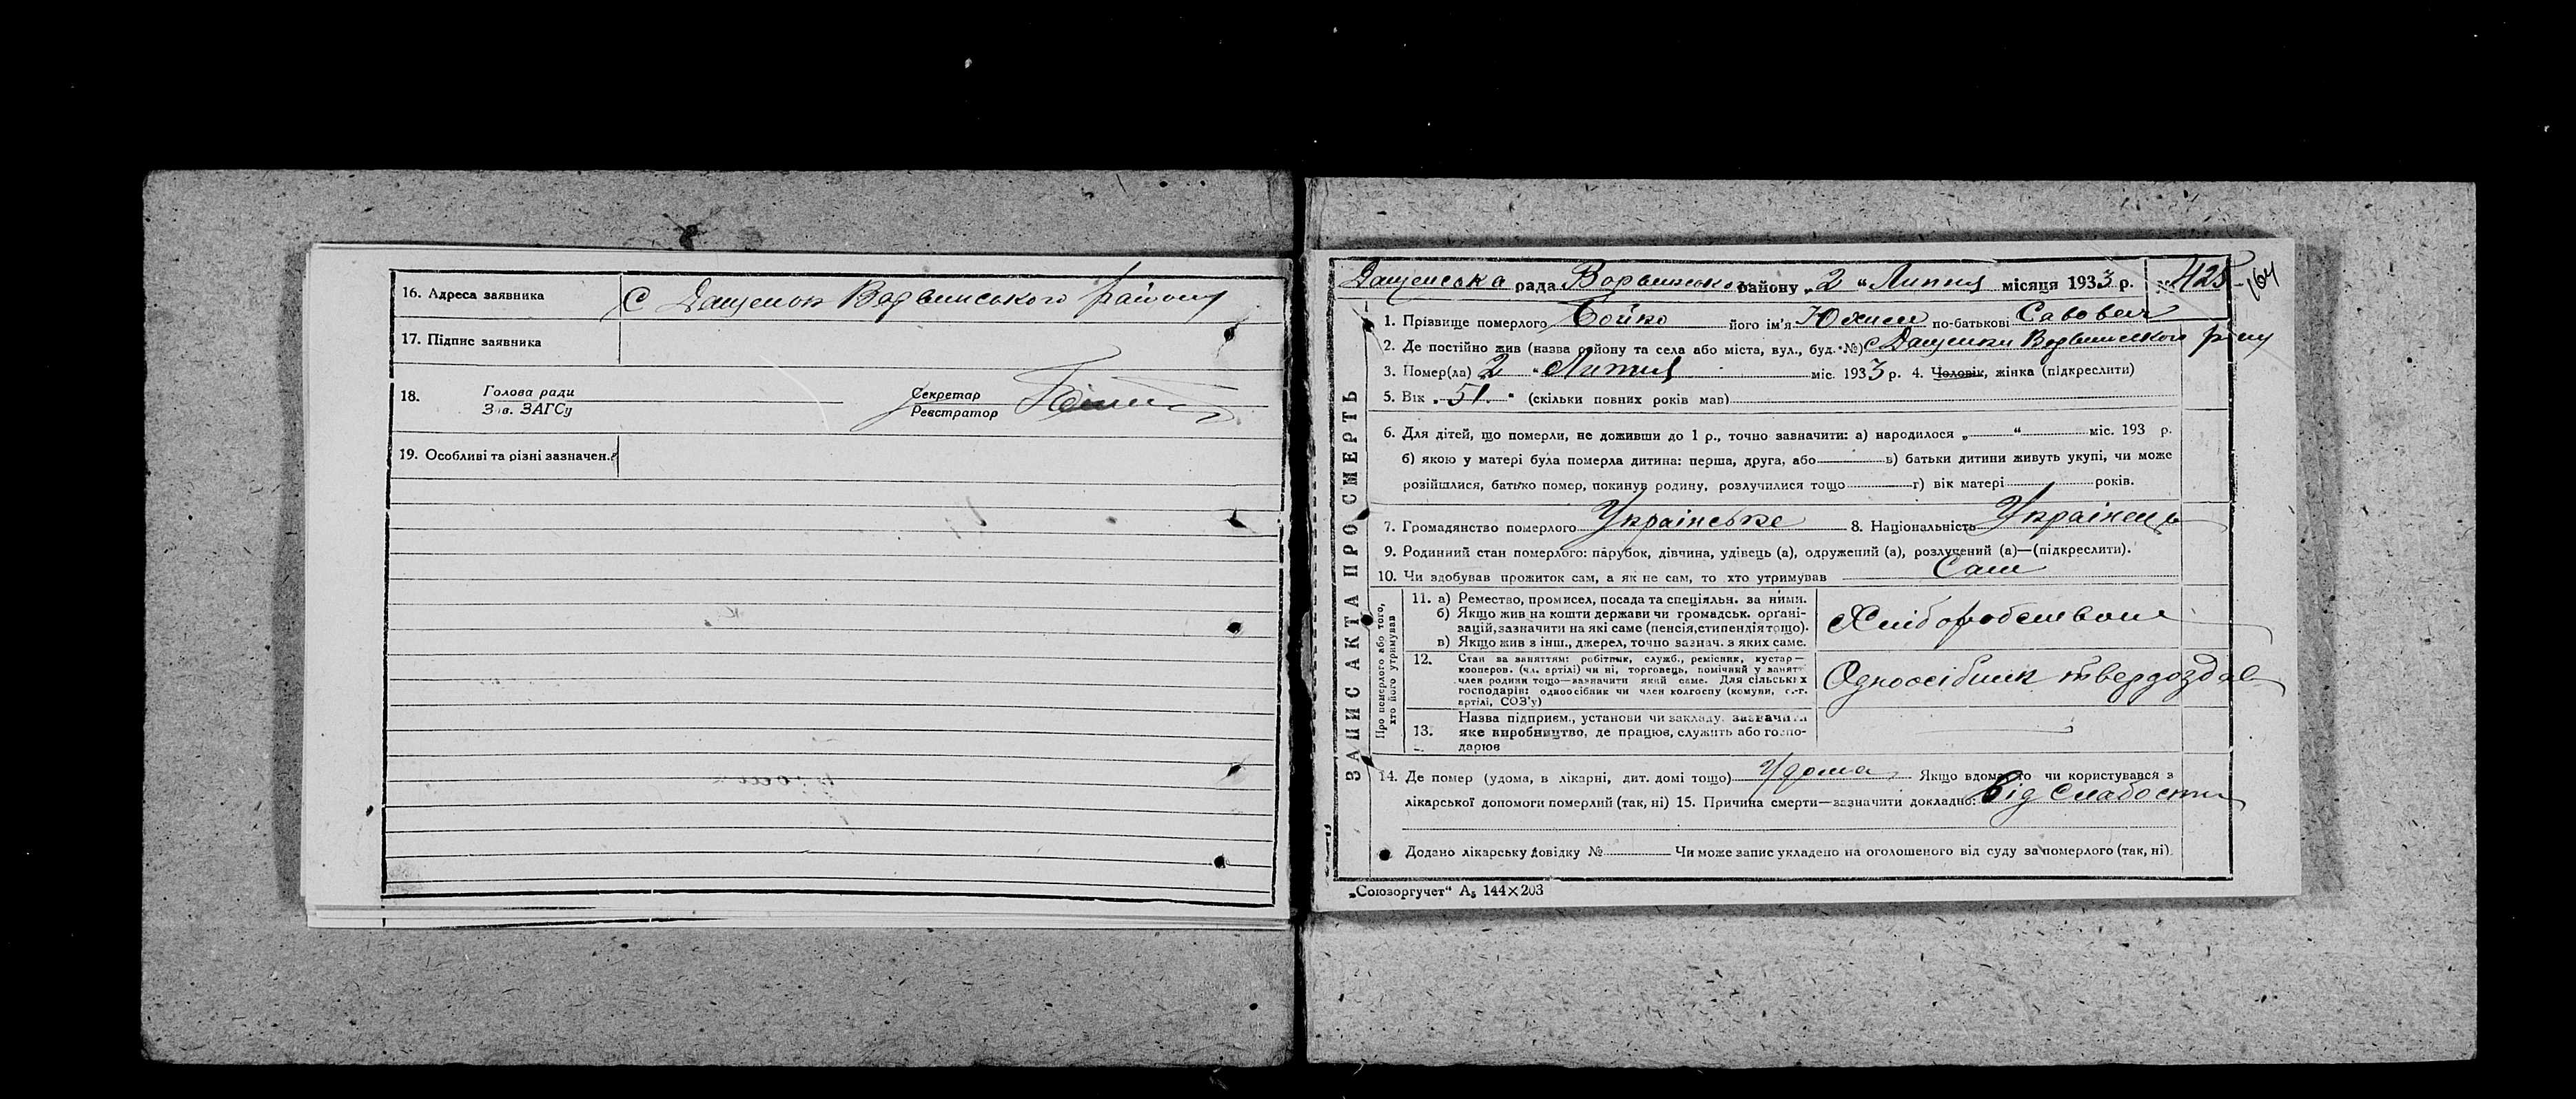 16. Адреса заявника С Дащенок Варвинського району
17. Підпис заявника
18. Голова ради Зав. ЗАГСу Секретар Реєстратор
19. Особливі та різні зазначен.
Дащенська рада Варвинського району „2“ Липня місяця 1933 р. № 425 164
ЗАПИС АКТА ПРО СМЕРТЬ
1. Прізвище померлого Бойко його ім'я Юхим по-батькові Савович
2. Де постійно жив (назва району та села або міста, вул., буд. №) с Дащенки Варвинського р-ну
3. Помер(ла) 2 “ Липня міс. 1933 р. 4. Чоловік, жінка (підкреслити)
5. Вік „ 51 “ (скільки повних років мав)
6. Для дітей, що померли, не доживши до 1 р., точно зазначити: а) народилося „ “ міс. 193 р.
б) якою у матері була померла дитина: перша, друга, або в) батьки дитини живуть укупі, чи може
розійшлися, батько помер, покинув родину, розлучилися тощо г) вік матері років.
7. Громадянство померлого Українське 8. Національність Українець
9. Родинний стан померлого: парубок, дівчина, удівець (а), одружений (а), розлучений (а)—(підкреслити).
10. Чи здобував прожиток сам, а як не сам, то хто утримував Сам
Про померлого або того,
хто його утримував
11. а) Ремество, промисел, посада та спеціяльн. за ними.
б) Якщо жив на кошти держави чи громадськ. органі-
зацій, зазначити на які саме (пенсія, стипендія тощо).
в) Якщо жив з інш., джерел, точно зазнач. з яких саме.
Хліборобством
12. Стан за заняттям: робітник, служб., ремісник, кустар—
кооперов. (чл. артілі) чи ні, торговець, помічний у занятт
член родини тощо—зазначити який саме. Для сільських
господарів: одноосібник чи член колгоспу (комуни, с.-г.
артілі, СОЗ'у)
Одноосібник твердоздав
13. Назва підприєм., установи чи закладу. зазначити
яке виробництво, де працює, служить або госпо-
дарює
14. Де помер (удома, в лікарні, дит. домі тощо) Удома Якщо вдома, то чи користувався з
лікарської допомоги померлий (так, ні) 15. Причина смерти—зазначити докладно: Від слабости
Додано лікарську довідку № Чи може запис укладено на оголошеного від суду за померлого (так, ні).
„Союзоргучет“ А₅ 144×203